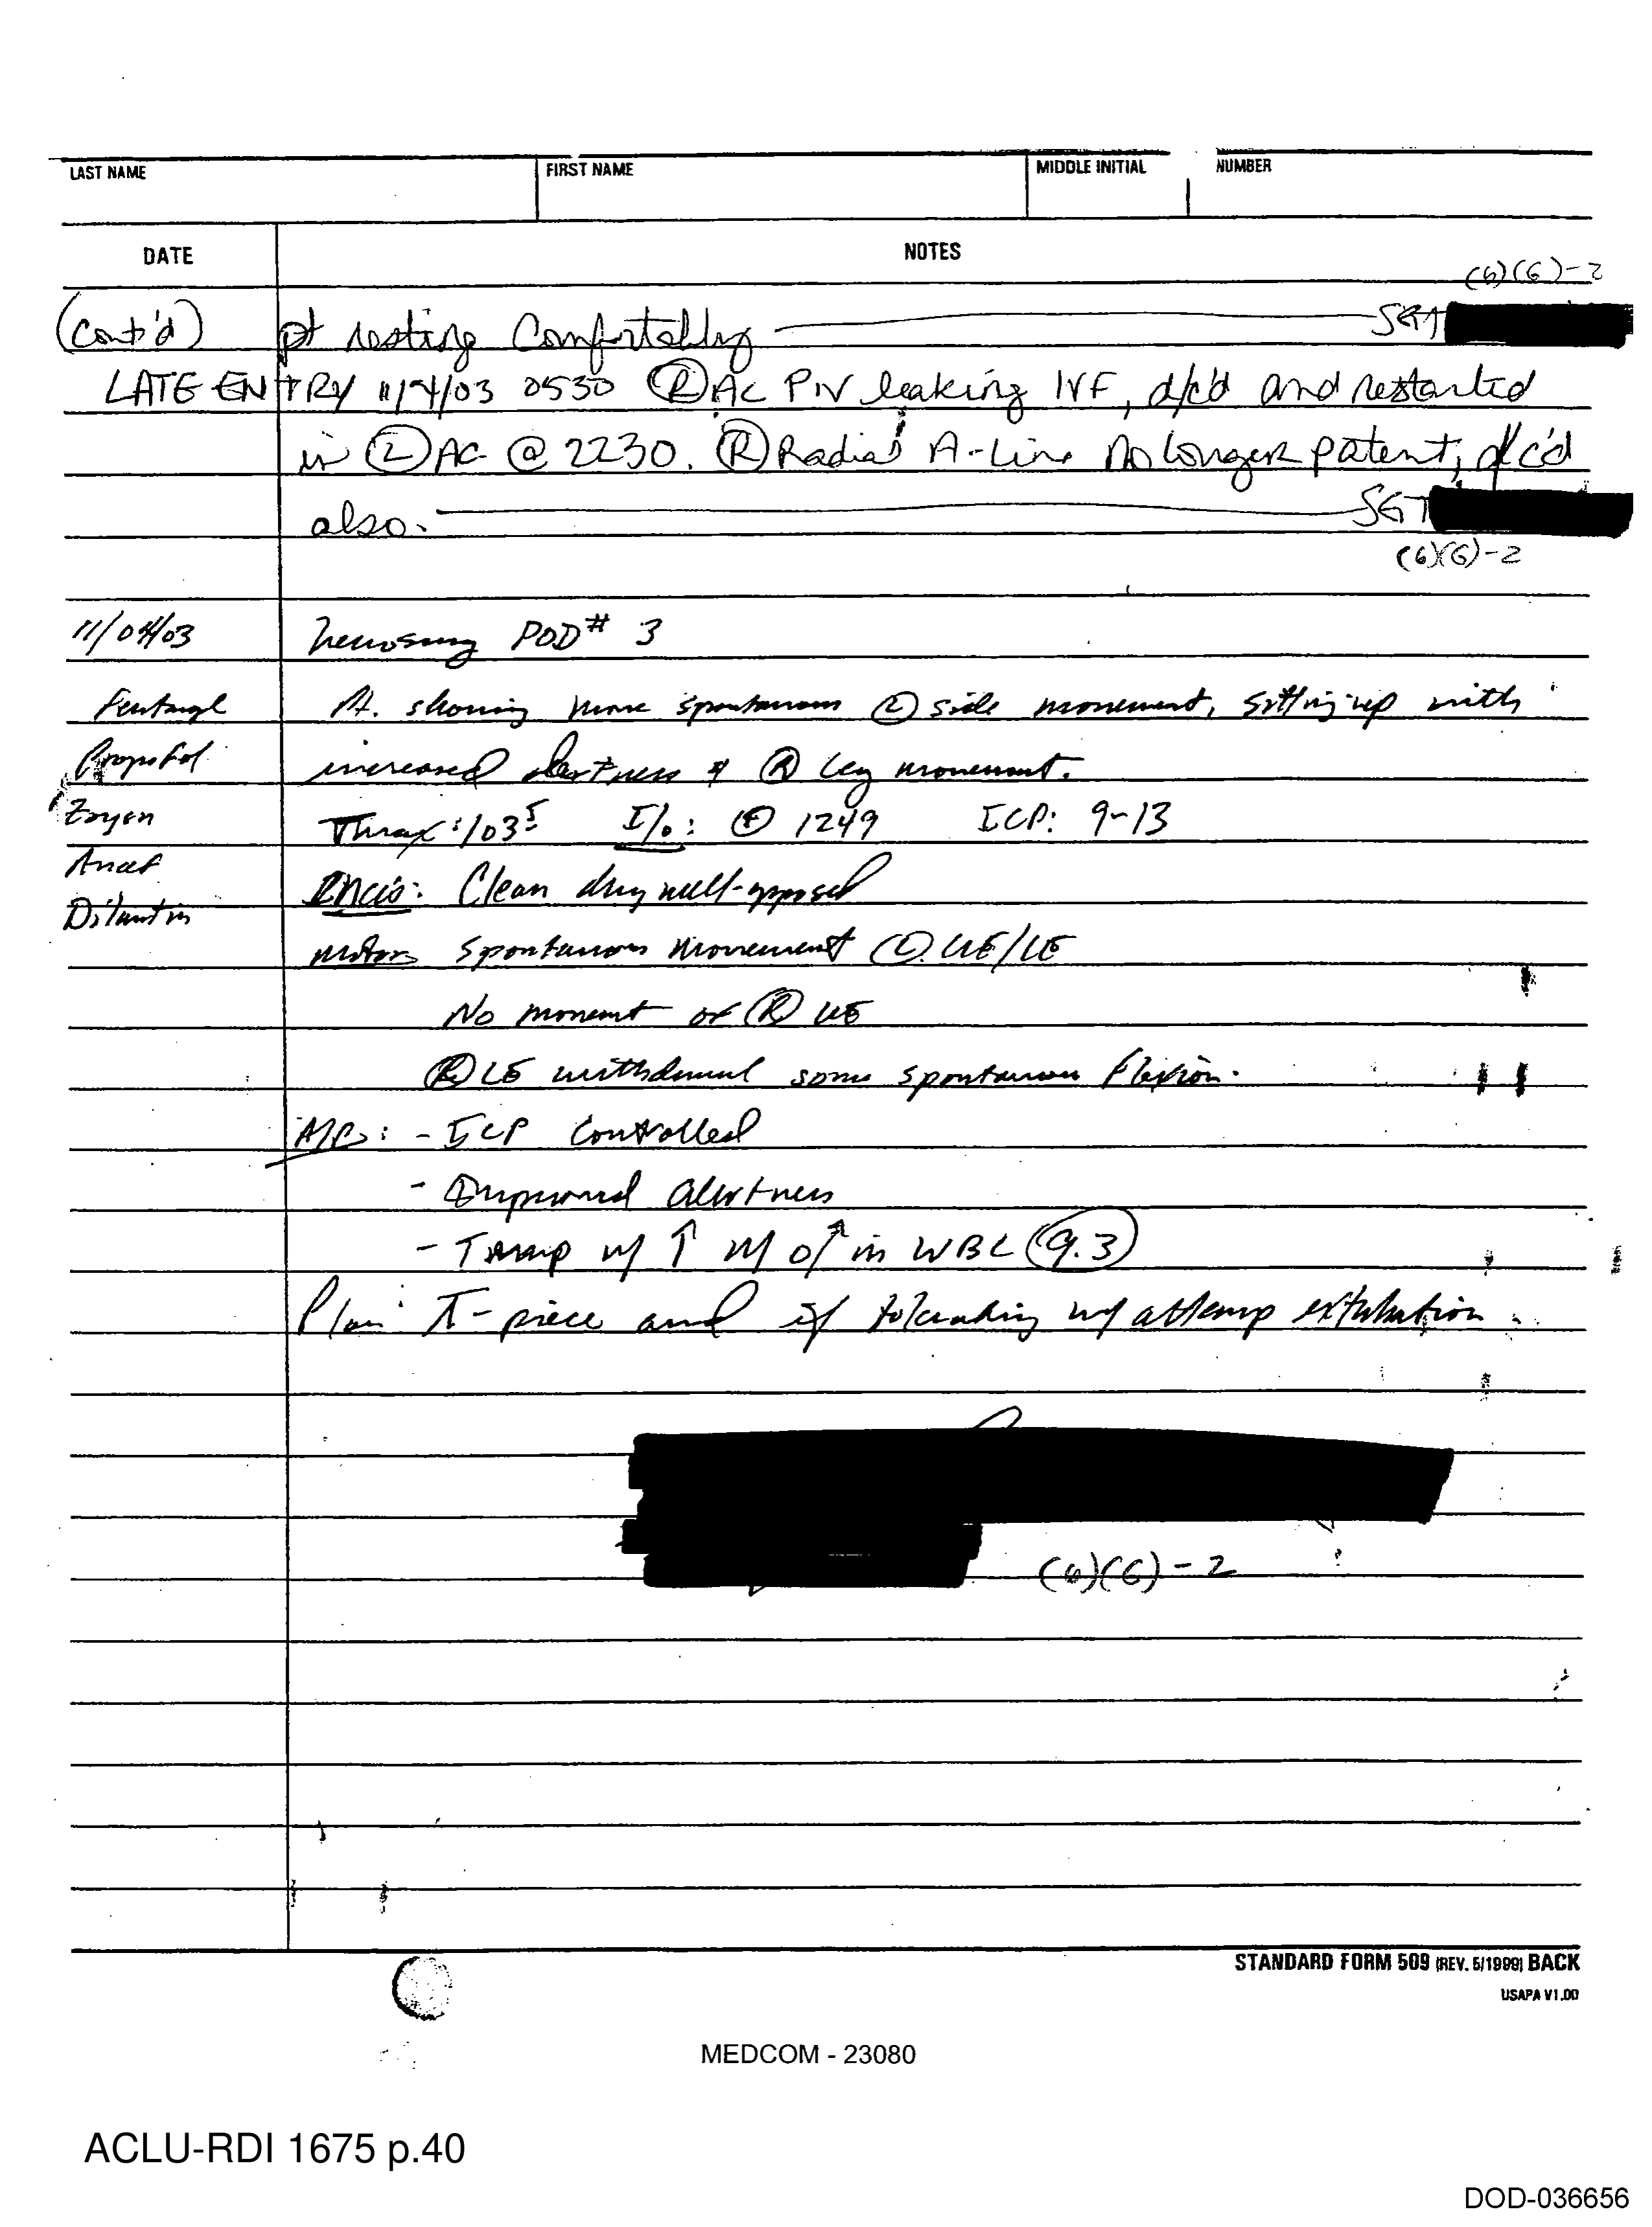 LAST NAME FIRST NAME MIDDLE INITIAL NUMBER
DATE NOTES
(b)(6)-2
(Cont'd) pt resting Comfortably SGT
LATE ENTRY 11/4/03 0530 Ⓡ AC PIV leaking IVF, d/c'd and restarted
in Ⓛ AC @ 2230. Ⓡ Radial A-Line No longer patent, d/c'd
also. SGT
(b)(6)-2
11/04/03 POD# 3
Fentanyl Pt. showing more spontaneous Ⓛ side movement, sitting up with
Propofol increased alertness & Ⓡ leg movement.
Tmax: 103⁵ I/o: ⊕ 1249 ICP: 9-13
Ancef Incis: Clean dry well-apposed
Dilantin
motor Spontaneous movement Ⓛ UE/LE
No movemt of Ⓡ UE
Ⓡ LE withdrawal some spontaneous flexion.
A/P: - ICP Controlled
- Improved alertness
- Temp w/ ↑ w/o ↑ in WBC (9.3)
Plan: T-piece and if tolerating w/ attemp extubation.
(b)(6)-2
STANDARD FORM 509 (REV. 5/1999) BACK
USAPA V1.00
MEDCOM - 23080
ACLU-RDI 1675 p.40
DOD-036656